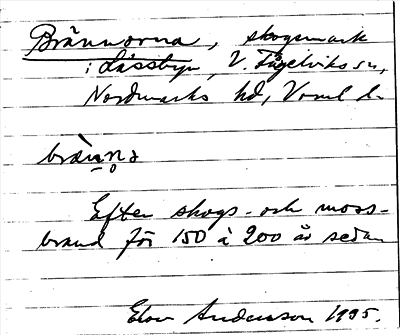 Brännorna, skogsmark
i Låssbyn, V. Fågelviks sn,
Nordmarks hd, Vrml l.
bræn̥ə
Efter skogs- och moss-
brand för 150 à 200 år sedan
Elov Andersson 1935.